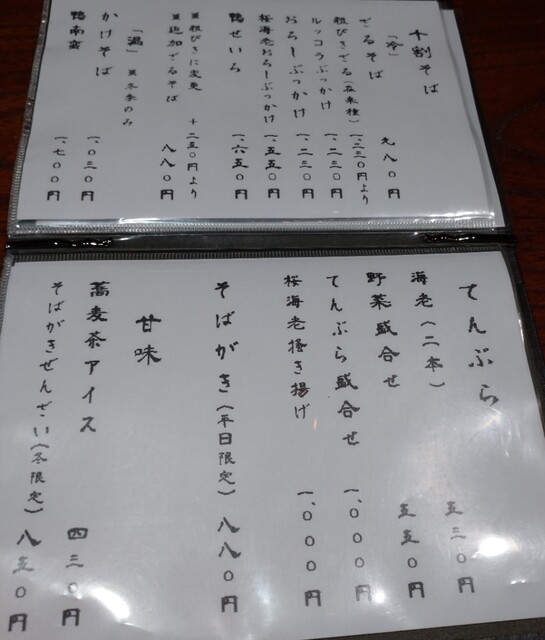 十割そば
「冷」
ざるそば 九八〇円
粗びきざる(在来種) 一、二三〇円より
ルッコラぶっかけ 一、二三〇円
おろしぶっかけ 一、二三〇円
桜海老おろしぶっかけ 一、五五〇円
鴨せいろ 一、六五〇円
※粗びきに変更 +二五〇円より
※追加ざるそば 八八〇円
「温」※冬季のみ
かけそば 一、〇三〇円
鴨南蛮 一、七〇〇円
てんぷら
海老(二本) 五三〇円
野菜盛合せ 五五〇円
てんぷら盛合せ 一、〇〇〇円
桜海老掻き揚げ 一、〇〇〇円
そばがき(平日限定) 八八〇円
甘味
蕎麦茶アイス 四三〇円
そばがきぜんざい(冬限定) 八五〇円